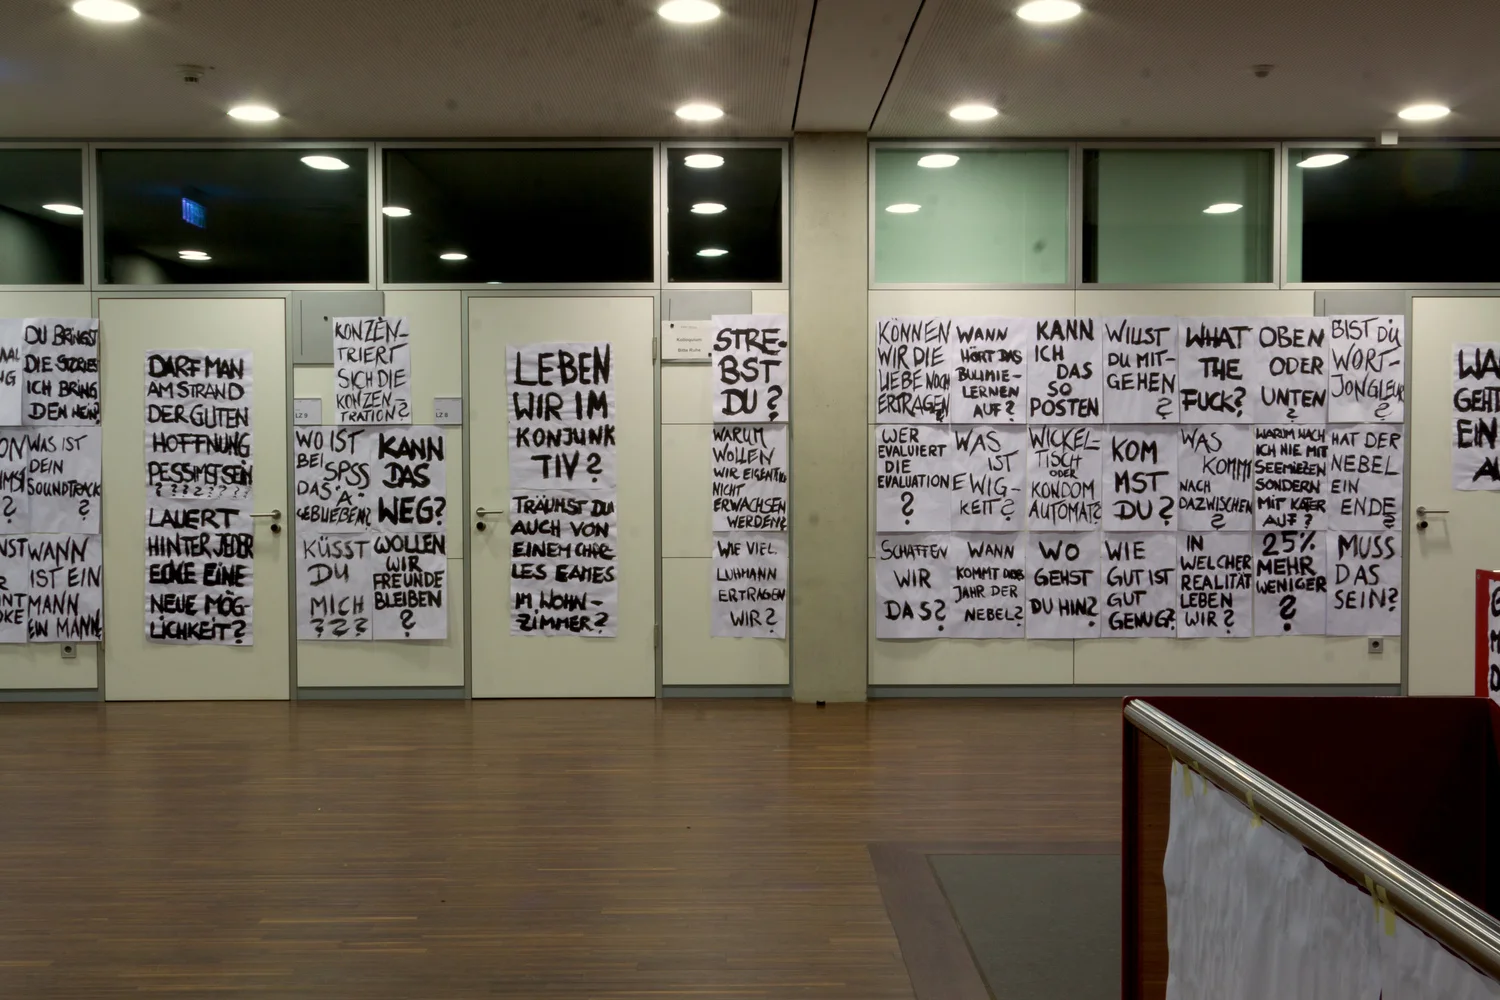 DU BRINGST
DIE STORIES
ICH BRING
DEN
WAS IST
DEIN
SOUNDTRACK
?
WANN
IST EIN
MANN
EIN MANN?
DARF MAN
AM STRAND
DER GUTEN
HOFFNUNG
PESSIMIST SEIN
???????
LAUERT
HINTER JEDER
ECKE EINE
NEUE MÖG-
LICHKEIT?
KONZEN-
TRIERT
SICH DIE
KONZEN-
TRATION?
LZ 9
LZ 8
WO IST
BEI SPSS
DAS "A"
GEBLIEBEN?
KANN
DAS
WEG?
KÜSST
DU
MICH
???
WOLLEN
WIR
FREUNDE
BLEIBEN
?
LEBEN
WIR IM
KONJUNK
TIV?
TRÄUMST DU
AUCH VON
EINEM CHAR-
LES EAMES
IM WOHN-
ZIMMER?
Kolloquium
Bitte Ruhe
STRE-
BST
DU?
WARUM
WOLLEN
WIR EIGENTLICH
NICHT
ERWACHSEN
WERDEN?
WIE VIEL
LUHMANN
ERTRAGEN
WIR?
KÖNNEN
WIR DIE
LIEBE NOCH
ERTRAGEN?
WANN
HÖRT DAS
BULIMIE-
LERNEN
AUF?
KANN
ICH
DAS
SO
POSTEN
WILLST
DU MIT-
GEHEN
?
WHAT
THE
FUCK?
OBEN
ODER
UNTEN
?
BIST DU
WORT-
JONGLEUR
?
WER
EVALUIERT
DIE
EVALUATION
?
WAS
IST
EWIG-
KEIT?
WICKEL-
TISCH
ODER
KONDOM
AUTOMAT?
KOM
MST
DU?
WAS
KOMMT
NACH
DAZWISCHEN
?
WARUM WACH
ICH NIE MIT
SEEMIEZEN
SONDERN
MIT KATER
AUF?
HAT DER
NEBEL
EIN
ENDE?
SCHAFFEN
WIR
DAS?
WANN
KOMMT DAS
JAHR DER
NEBEL?
WO
GEHST
DU HIN?
WIE
GUT IST
GUT
GENUG?
IN
WELCHER
REALITÄT
LEBEN
WIR?
25%
MEHR
WENIGER
?
MUSS
DAS
SEIN?